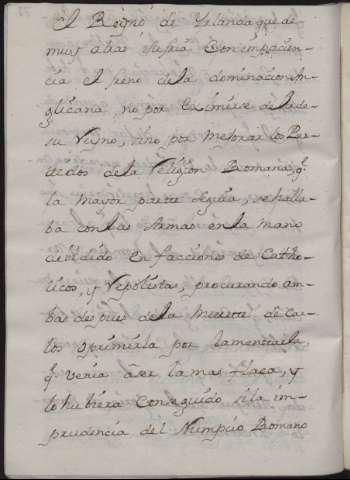 El Reyno de Yrlanda que de
muy atras sufria con impacien-
cia el freno de la dominacion An-
glicana, no por Eximirse de la de
su Reyno, sino por mejorar los Par-
tidos de la Religion Romana, q.
la mayor parte seguia, se halla-
ba con las Armas en la mano
dividido En facciones de Catho-
licos, y Realistas, procurando am-
bas despues de la Muerte de Car-
los oprimirla por lamentarla,
q. venia â ser la mas flaca, y
lo hubiera conseguido si la im-
prudencia del Numpcio Romano